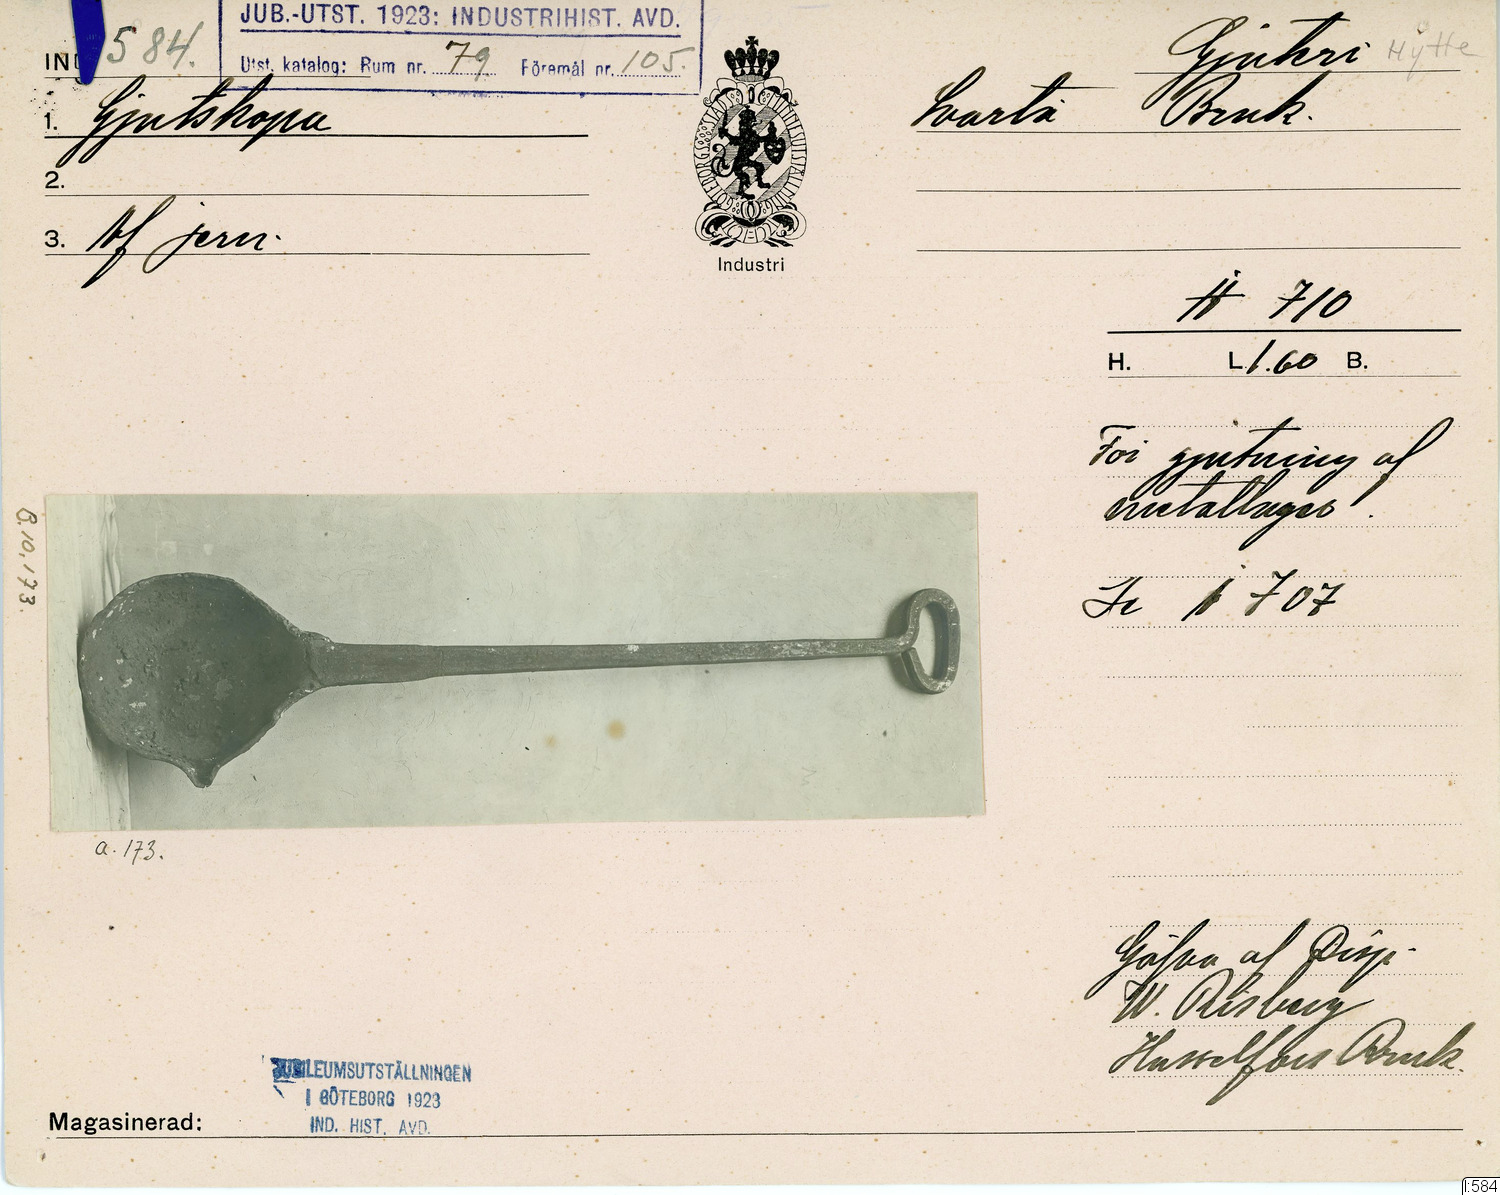 JUB.-UTST. 1923: INDUSTRIHIST. AVD.
Utst. katalog: Rum nr. 79 Föremål nr. 105.
IND 584.
Gjuteri Hytte
1. Gjutskopa
Svartå Bruk.
2.
3. Af jern.
GÖTEBORGS STADS JUBILEUMSUTSTÄLLNING
Industri
# 710
H. L. 1.60 B.
För gjutning af
metallager.
Se # 707
B.10,173.
a. 173.
Gåfva af Disp.
W. Risberg
Hasselfors Bruk.
JUBILEUMSUTSTÄLLNINGEN
I GÖTEBORG 1923
IND. HIST. AVD.
Magasinerad:
I:584